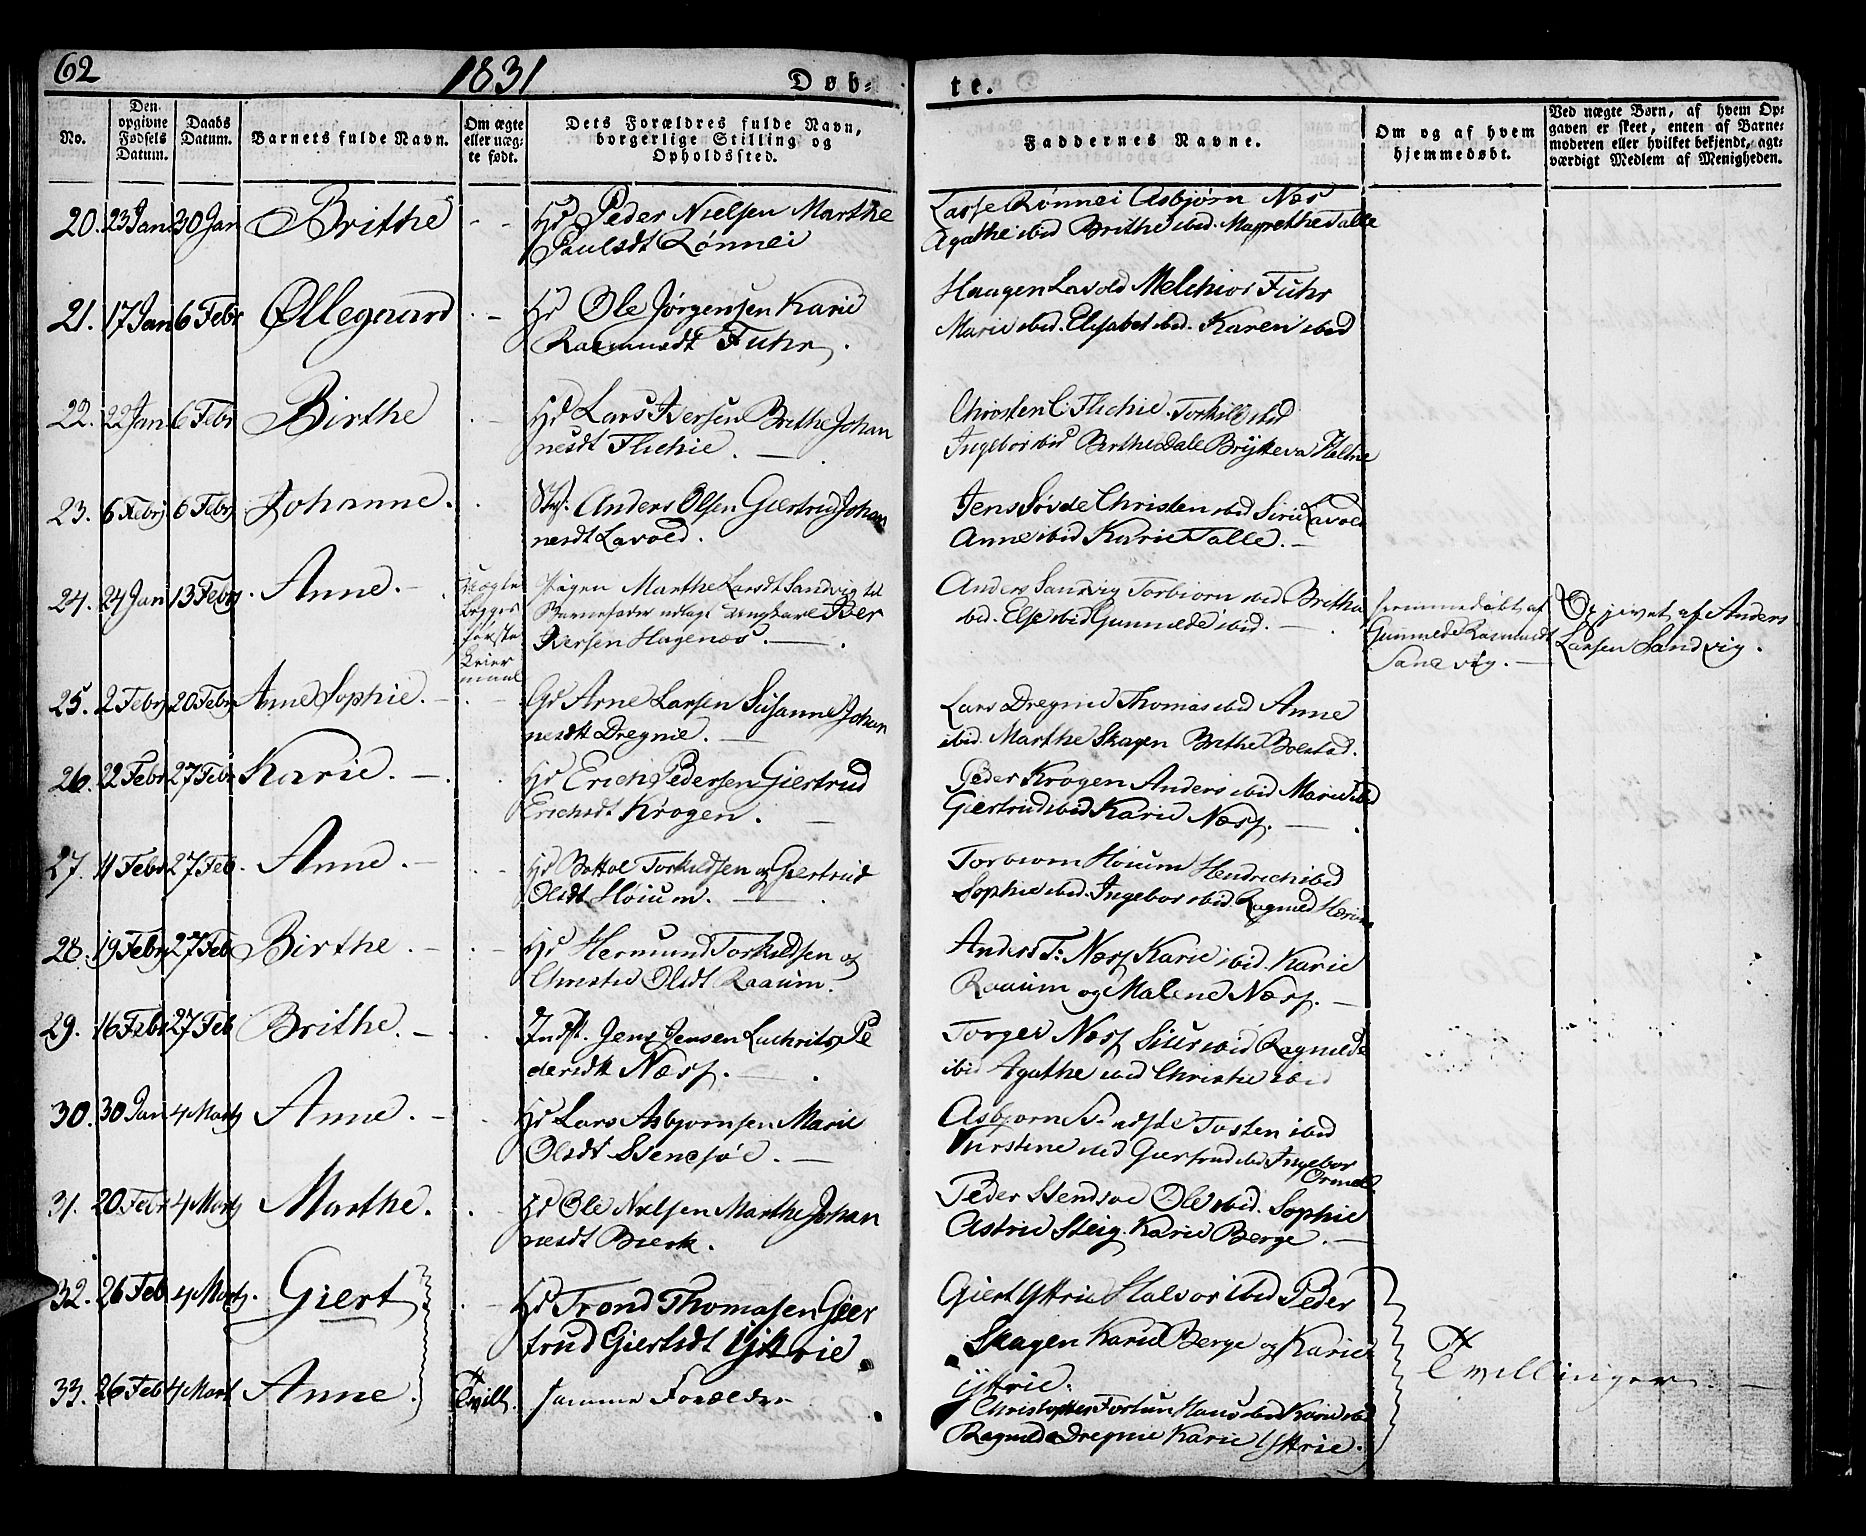 62
1831
Døb-
te.
No.
Den opgivne Fødsels Datum.
Daabs Datum.
Barnets fulde Navn.
Om ægte eller uægte født.
Dets Forældres fulde Navn, borgerlige Stilling og Opholdssted.
Faddernes Navne.
Om og af hvem hjemmedøbt.
Ved uægte Børn, af hvem Opgaven er skeet, enten af Barnemoderen eller hvilket bekjendt, agtværdigt Medlem af Menigheden.
20. 23 Jan 30 Jan Brithe - - Hd Peder Nielsen Marthe
Paulsdt Rønnei
Lasse Rønnei Asbjørn Næs
Agathe ibid Brithe ibid. Margrethe Talle
21. 17 Jan 6 Febr Øllegaard . - Hd Ole Jørgensen Karie
Rasmusdt Fuhr.
Haagen Lavold Melchior Fuhr
Marie ibid. Elisabet ibd. Karen ibid
22. 22 Jan 6 Febr Birthe . - Hd Lars Iversen Brithe Johan
nesdt Flichie. -
Christen C. Flichie. Torkild ibid
Ingebor ibid Berthe Dale
23. 6 Febr 6 Febr Johanne. . Anders Olsen Giertrud Johan
nesdt Lavold.
Jens Søvde Christen ibid Siri Lavold
Anne ibid Karie Talle. -
24. 24 Jan 13 Febr. Anne. - Uægte
Begges
første
Leier
maal
Pigen Marthe Larsdt Sandvig til
Barnefader udlagt Ungkarl Iver
Iversen Hagenæs. -
Anders Sandvig Torbiørn ibid. Britha
ibd. Else ibid Gunnilde ibid. -
Hiemmedøbt af
Gunnilde Rasmusdt
Sandvig. -
Opgivet af Anders
Larsen Sandvig.
25. 2 Febr 20 Febr Anne Sophie. - Gd Arne Larsen Susanne Johan
nesdt Dregnie. -
Lars Dregnie Thomas ibid Anne
ibid. Marthe Skagen Brithe Bolstad.
26. 22 Febr 27 Febr Karie. - Hd Erich Pedersen Giertrud
Erichsdt Krogen. -
Peder Krogen Anders ibid Marie ibd
Giertrud ibid Karie Næss. -
27. 11 Febr 27 Feb. Anne. - Hd Bottol Torkildsen og Giertrud
Olsdt Høium. -
Torbiørn Høium Hendrich ibid
Sophie ibid. Ingebor ibid. Ragnild
28. 19 Febr 27 Feb Birthe. - Hd Hermund Torkildsen og
Christie Olsdt Raaum.
Anders T: Næss Karie ibid. Karie
Raaum og Malene Næss. -
29. 16 Febr 27 Feb Brithe. - Indst. Jens Jensen Luchrits Pe
dersdt Næss. -
Torger Næss Siur ibid Ragnilde
ibid Agathe ibid Christie ibid
30. 30 Jan 4 Marty Anne. - Hd Lars Asbjørnsen Marie
Olsdt Stensøe. -
Asbjørn Tosten ibid
Kirstine ibid Giertrud ibd. Ingebor
Ormel.
31. 20 Febr 4 Marty Marthe. Hd Ole Nielsen Marthe Johan
nesdt Bierk.
Peder Stensøe Ole ibid. Sophie
Astrid Steig. Karie Berge. -
32. 26 Feb 4 Marty. Giert . - Hd Trond Thomasen Gier
trud Giertsdt Yttrie.
Giert Yttrie Halvor ibid Peder
Skagen Karie Berge og Karie
Yttrie.
Tvillinger. -
33. 26 Feb 4 Mart Anne. Tvill. samme Forældre
Christopher Fortun Hans ibid Karie ibd
Ragnilde Dregnie Karie Yttrie.